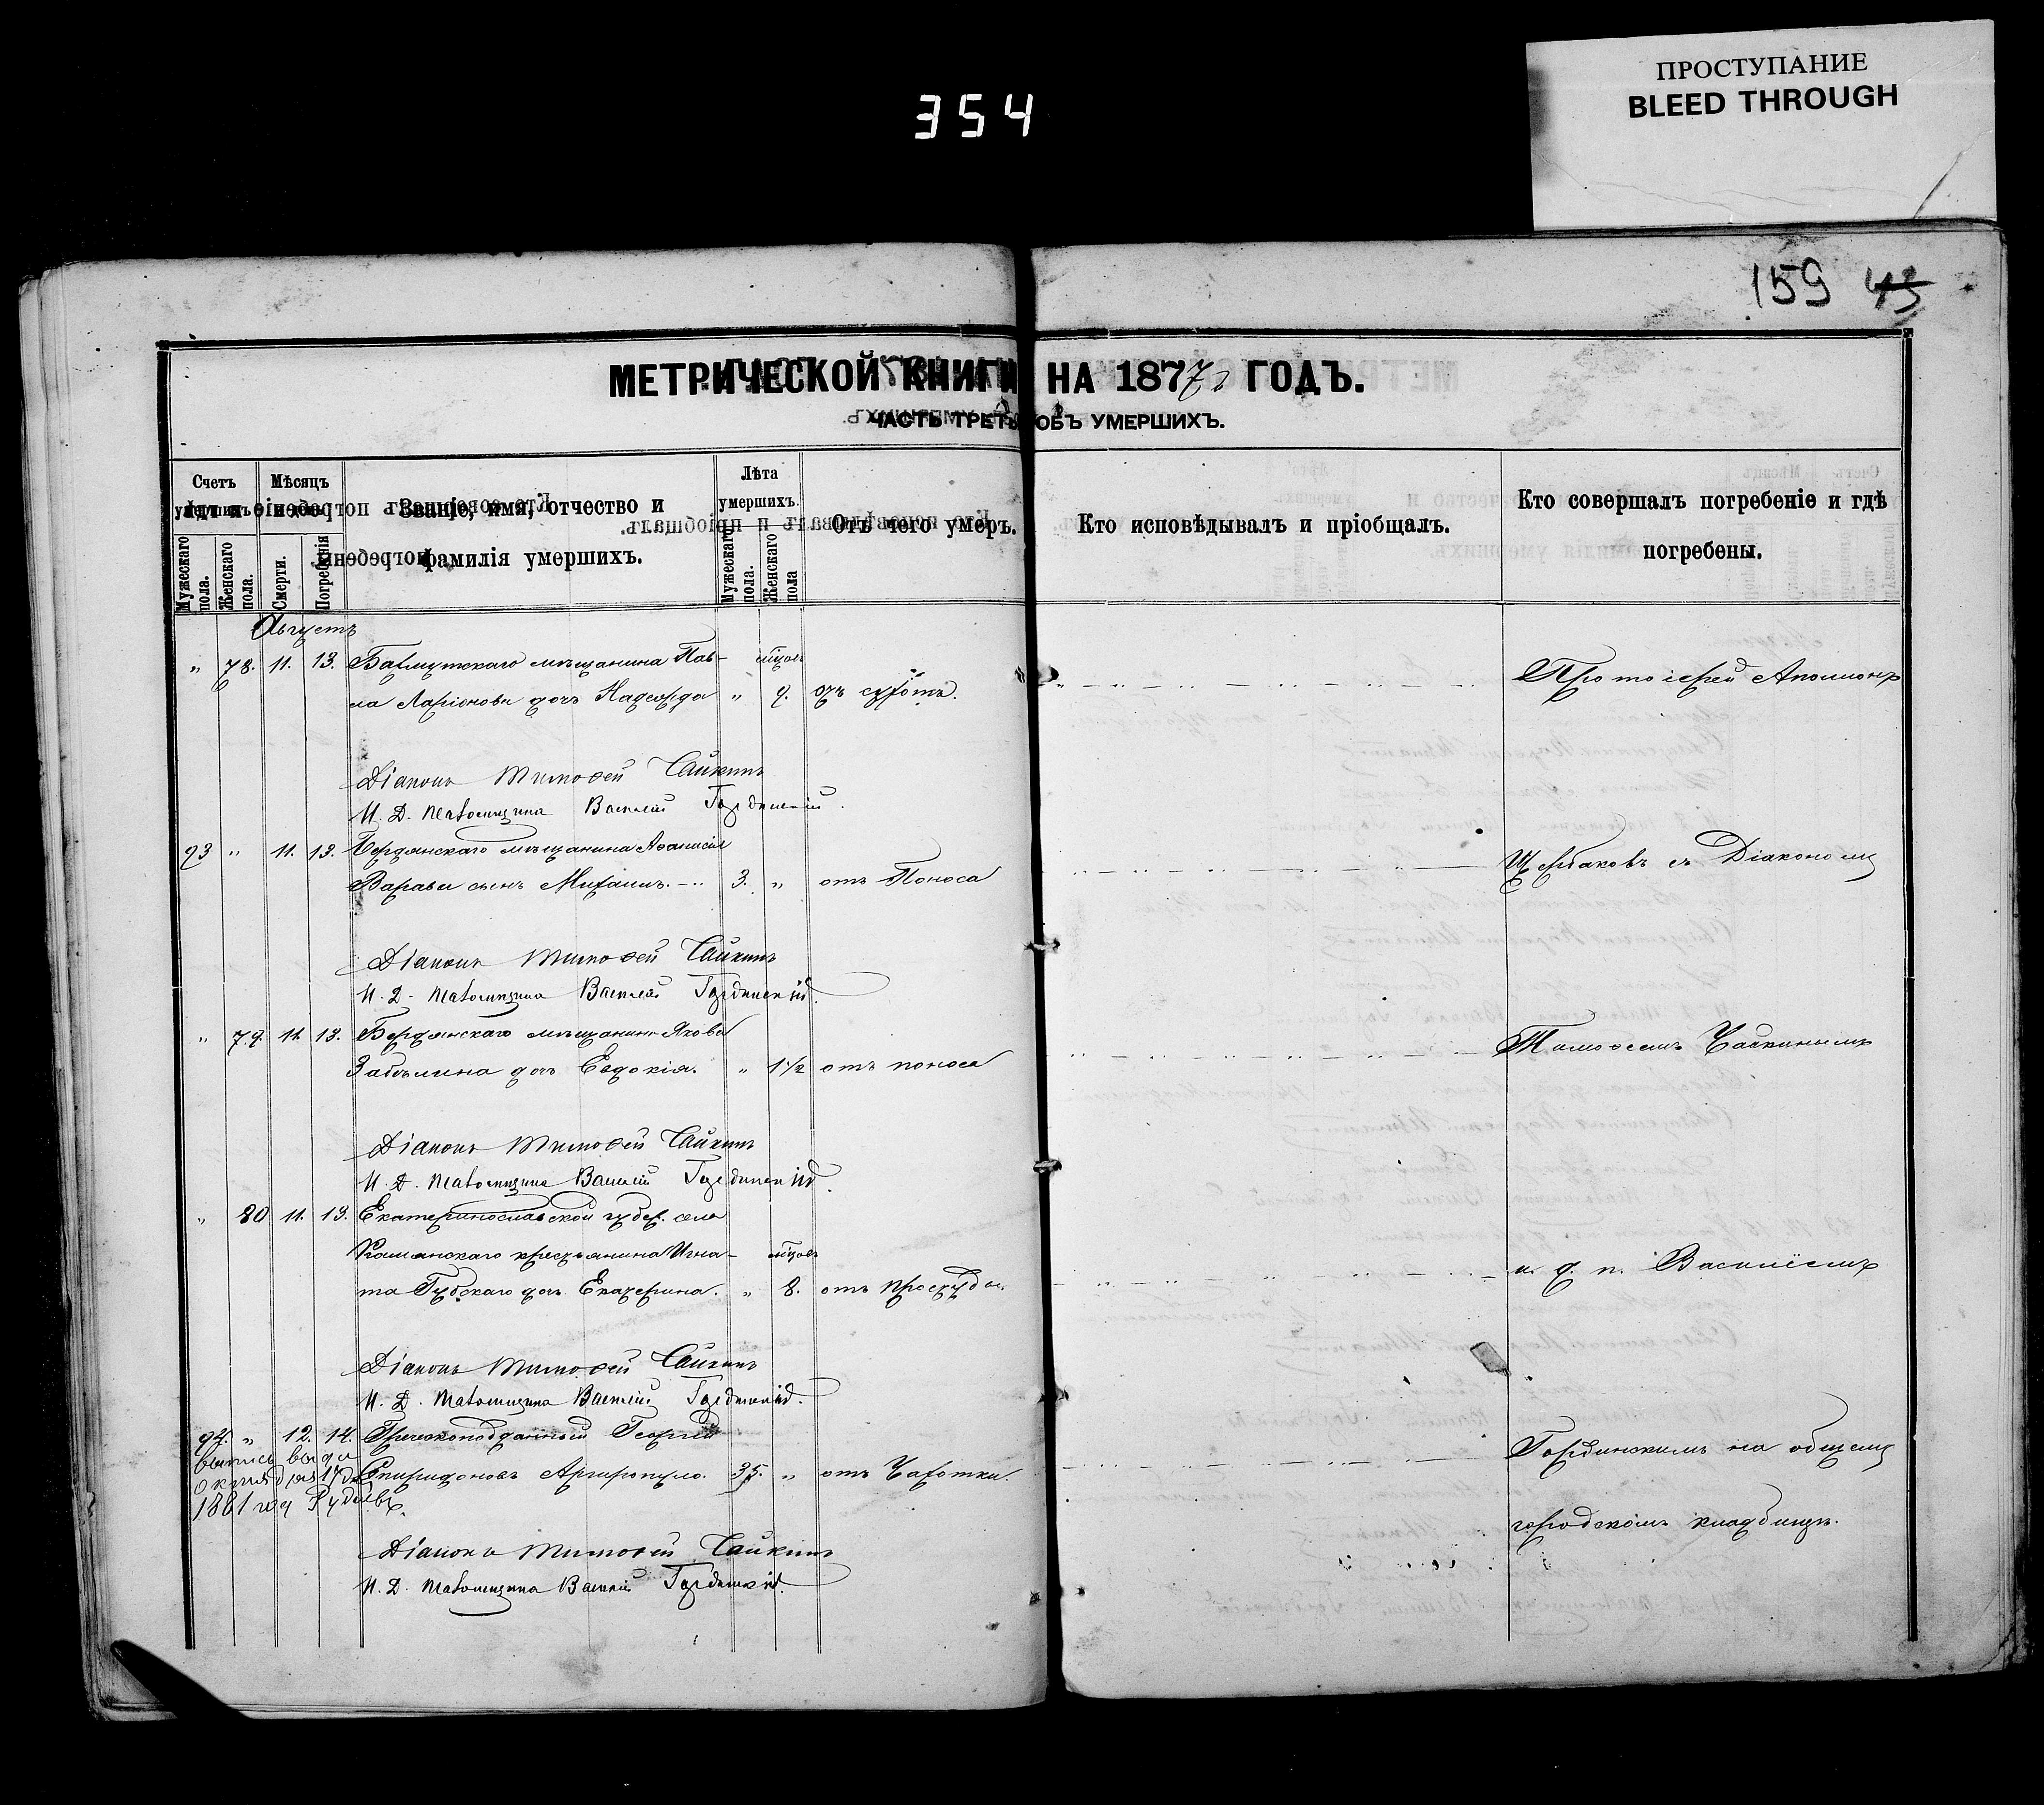 ПРОСТУПАНИЕ
BLEED THROUGH
354
159 43
МЕТРИЧЕСКОЙ КНИГИ НА 1877 ГОДЪ.
ЧАСТЬ ТРЕТЬЯ ОБЪ УМЕРШИХЪ.
Счетъ умершихъ.
Мужескаго пола.
Женскаго пола.
Мѣсяцъ и день.
Смерти.
Погребенія
Званіе, имя, отчество и
фамилія умершихъ.
Лѣта
умершихъ.
Мужескаго пола.
Женскаго пола
Отъ чего умеръ.
Кто исповѣдывалъ и пріобщалъ.
Кто совершалъ погребеніе и гдѣ
погребены.
Августъ
" 78. 11. 13. Бахмутскаго мѣщанина Пав-
ла Ларіонова дочь Надежда " 9.
Протоіерей
Діаконъ Тимоѳей Чайкинъ
И. Д. Псаломщика Василій Гординскій.
93 " 11. 13. Бердянскаго мѣщанина Аѳанасія
Варавы сынъ Михаилъ. 3. " отъ Поноса
Щербаковъ съ Діакономъ
Діаконъ Тимоѳей Чайкинъ
И. Д. Псаломщика Василій Гординскій.
" 79. 11. 13. Бердянскаго мѣщанина Якова
Забѣлина дочь Евдокія. " 1 1/2 отъ поноса
Тимоѳеемъ Чайкинымъ
Діаконъ Тимоѳей Чайкинъ
И. Д. Псаломщика Василій Гординскій.
" 80 11. 13. Екатеринославской губер. села
Каменскаго крестьянина Игна-
та Губскаго дочь Екатерина. " 8. отъ простуды.
и. д. п. Василіемъ
Діаконъ Тимоѳей Чайкинъ
И. Д. Псаломщика Василій Гординскій.
94. " 12. 14. Греческоподданный Георгій
Спиридоновъ Аргиропуло. 35. " отъ Чахотки
Гординскимъ на общемъ
городскомъ кладбищѣ.
1881 года
Діаконъ Тимоѳей Чайкинъ
И. Д. Псаломщика Василій Гординскій.